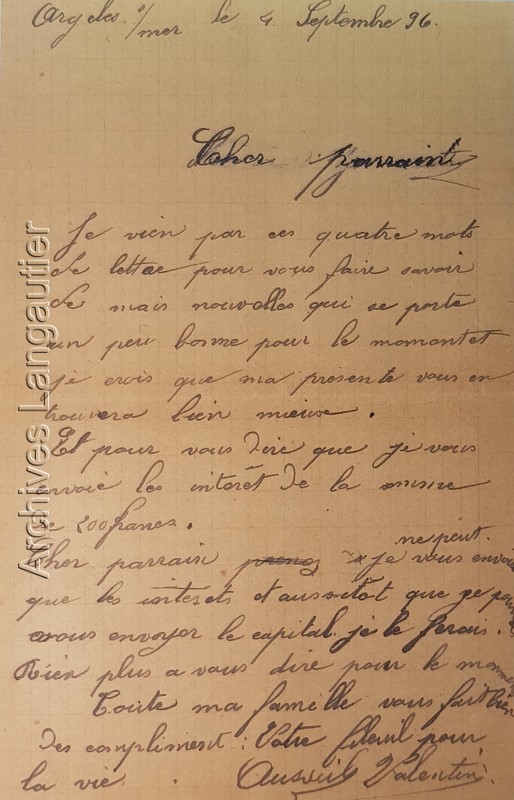 Argeles s/mer le 4 Septembre 96.
Cher parraint
Je vien par ces quatre mots
de lettre pour vous faire savoir
de mais nouvelles qui se porte
un peu bonne pour le momant et
je crois que ma présente vous en
trouvera bien mieuse.
Et pour vous dire que je vous
envoie les intérêt de la somme
de 200 francs.
Cher parrain je ne peut vous envoie
que les interets et aussitôt que je peu
vous envoyer le capital je le ferais.
Rien plus a vous dire pour le moment
Toute ma famille vous fait bien
des compliment : Votre filleul pour
la vie. Valentin
Archives Langautier